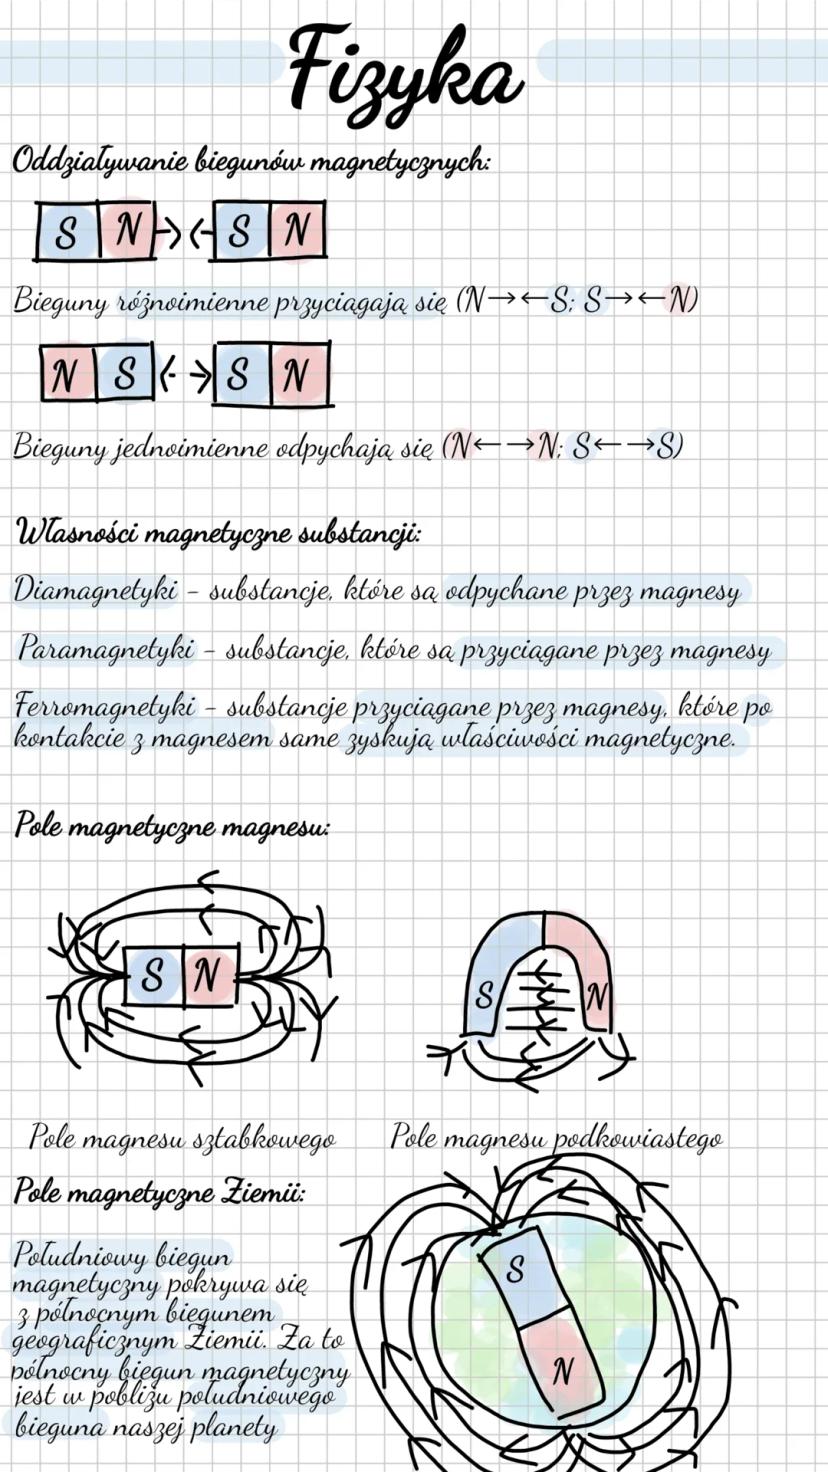 Fizyka
Oddziaływanie biegunów magnetycznych:
S N →← S N
Bieguny różnoimienne przyciągają się (N→←S; S→←N)
N S ←→ S N
Bieguny jednoimienne odpychają się (N←→N; S←→S)
Własności magnetyczne substancji:
Diamagnetyki – substancje, które są odpychane przez magnesy
Paramagnetyki – substancje, które są przyciągane przez magnesy
Ferromagnetyki – substancje przyciągane przez magnesy, które po
kontakcie z magnesem same zyskują właściwości magnetyczne.
Pole magnetyczne magnesu:
S N
S N
Pole magnesu sztabkowego
Pole magnesu podkowiastego
Pole magnetyczne Ziemii:
Południowy biegun
magnetyczny pokrywa się
z północnym biegunem
geograficznym Ziemii. Za to
północny biegun magnetyczny
jest w pobliżu południowego
bieguna naszej planety
S
N